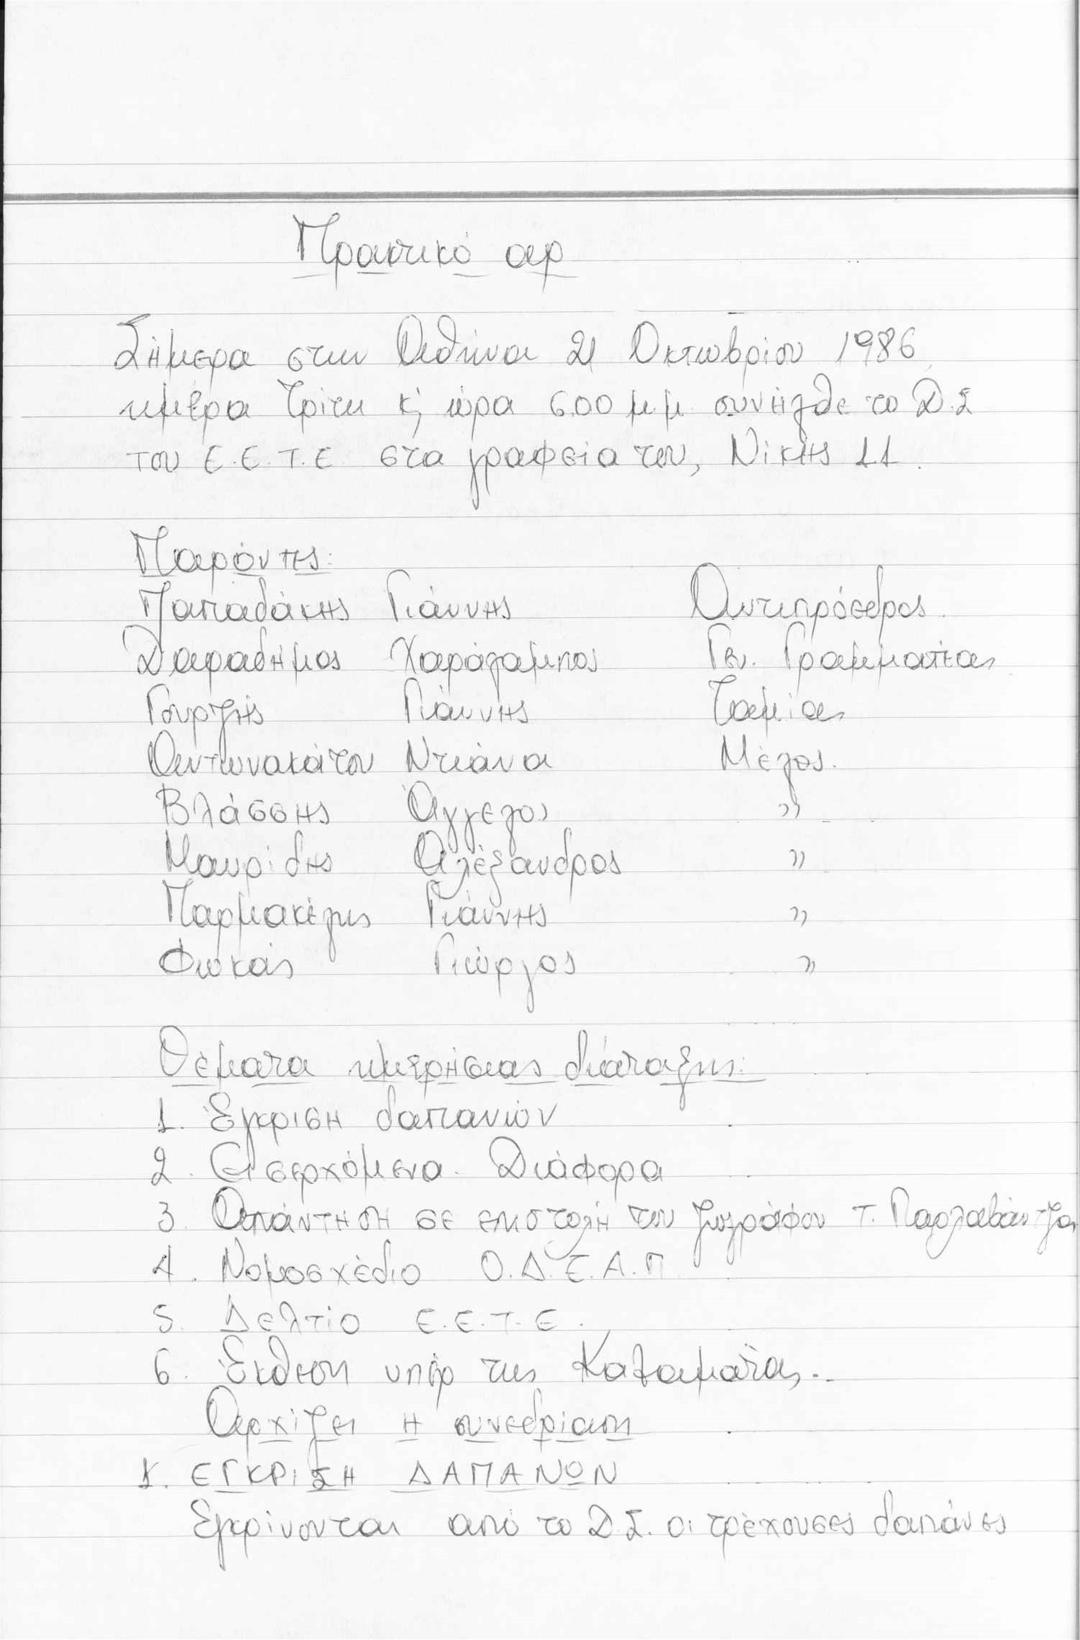 Πρακτικό αρ
Σήμερα στην Αθήνα 21 Οκτωβρίου 1986
ημέρα Τρίτη κ' ώρα 6.00 μ.μ. συνήλθε το Δ.Σ
του Ε.Ε.Τ.Ε στα γραφεία του, Νίκης 11.
Παρόντες:
Παπαδάκης Γιάννης Αντιπρόεδρος.
Δαραδήμος Χαράλαμπος Γεν. Γραμματέας
Γουρζής Γιάννης Ταμίας
Αντωνακάτου Ντιάνα Μέλος.
Βλάσσης Άγγελος "
Μαυρίδης Αλέξανδρος "
Παρμακέλης Γιάννης "
Φωκάς Γιώργος "
Θέματα ημερήσιας διάταξης:
1. Έγκριση δαπανών
2. Εισερχόμενα. Διάφορα
3. Απάντηση σε επιστολή του ζωγράφου Τ. Παρλαβάντζα
4. Νομοσχέδιο Ο.Δ.Ε.Α.Π
5. Δελτίο Ε.Ε.Τ.Ε.
6. Έκθεση υπέρ της Καλαμάτας..
Αρχίζει η συνεδρίαση
1. ΕΓΚΡΙΣΗ ΔΑΠΑΝΩΝ
Εγκρίνονται από το Δ.Σ. οι τρέχουσες δαπάνες